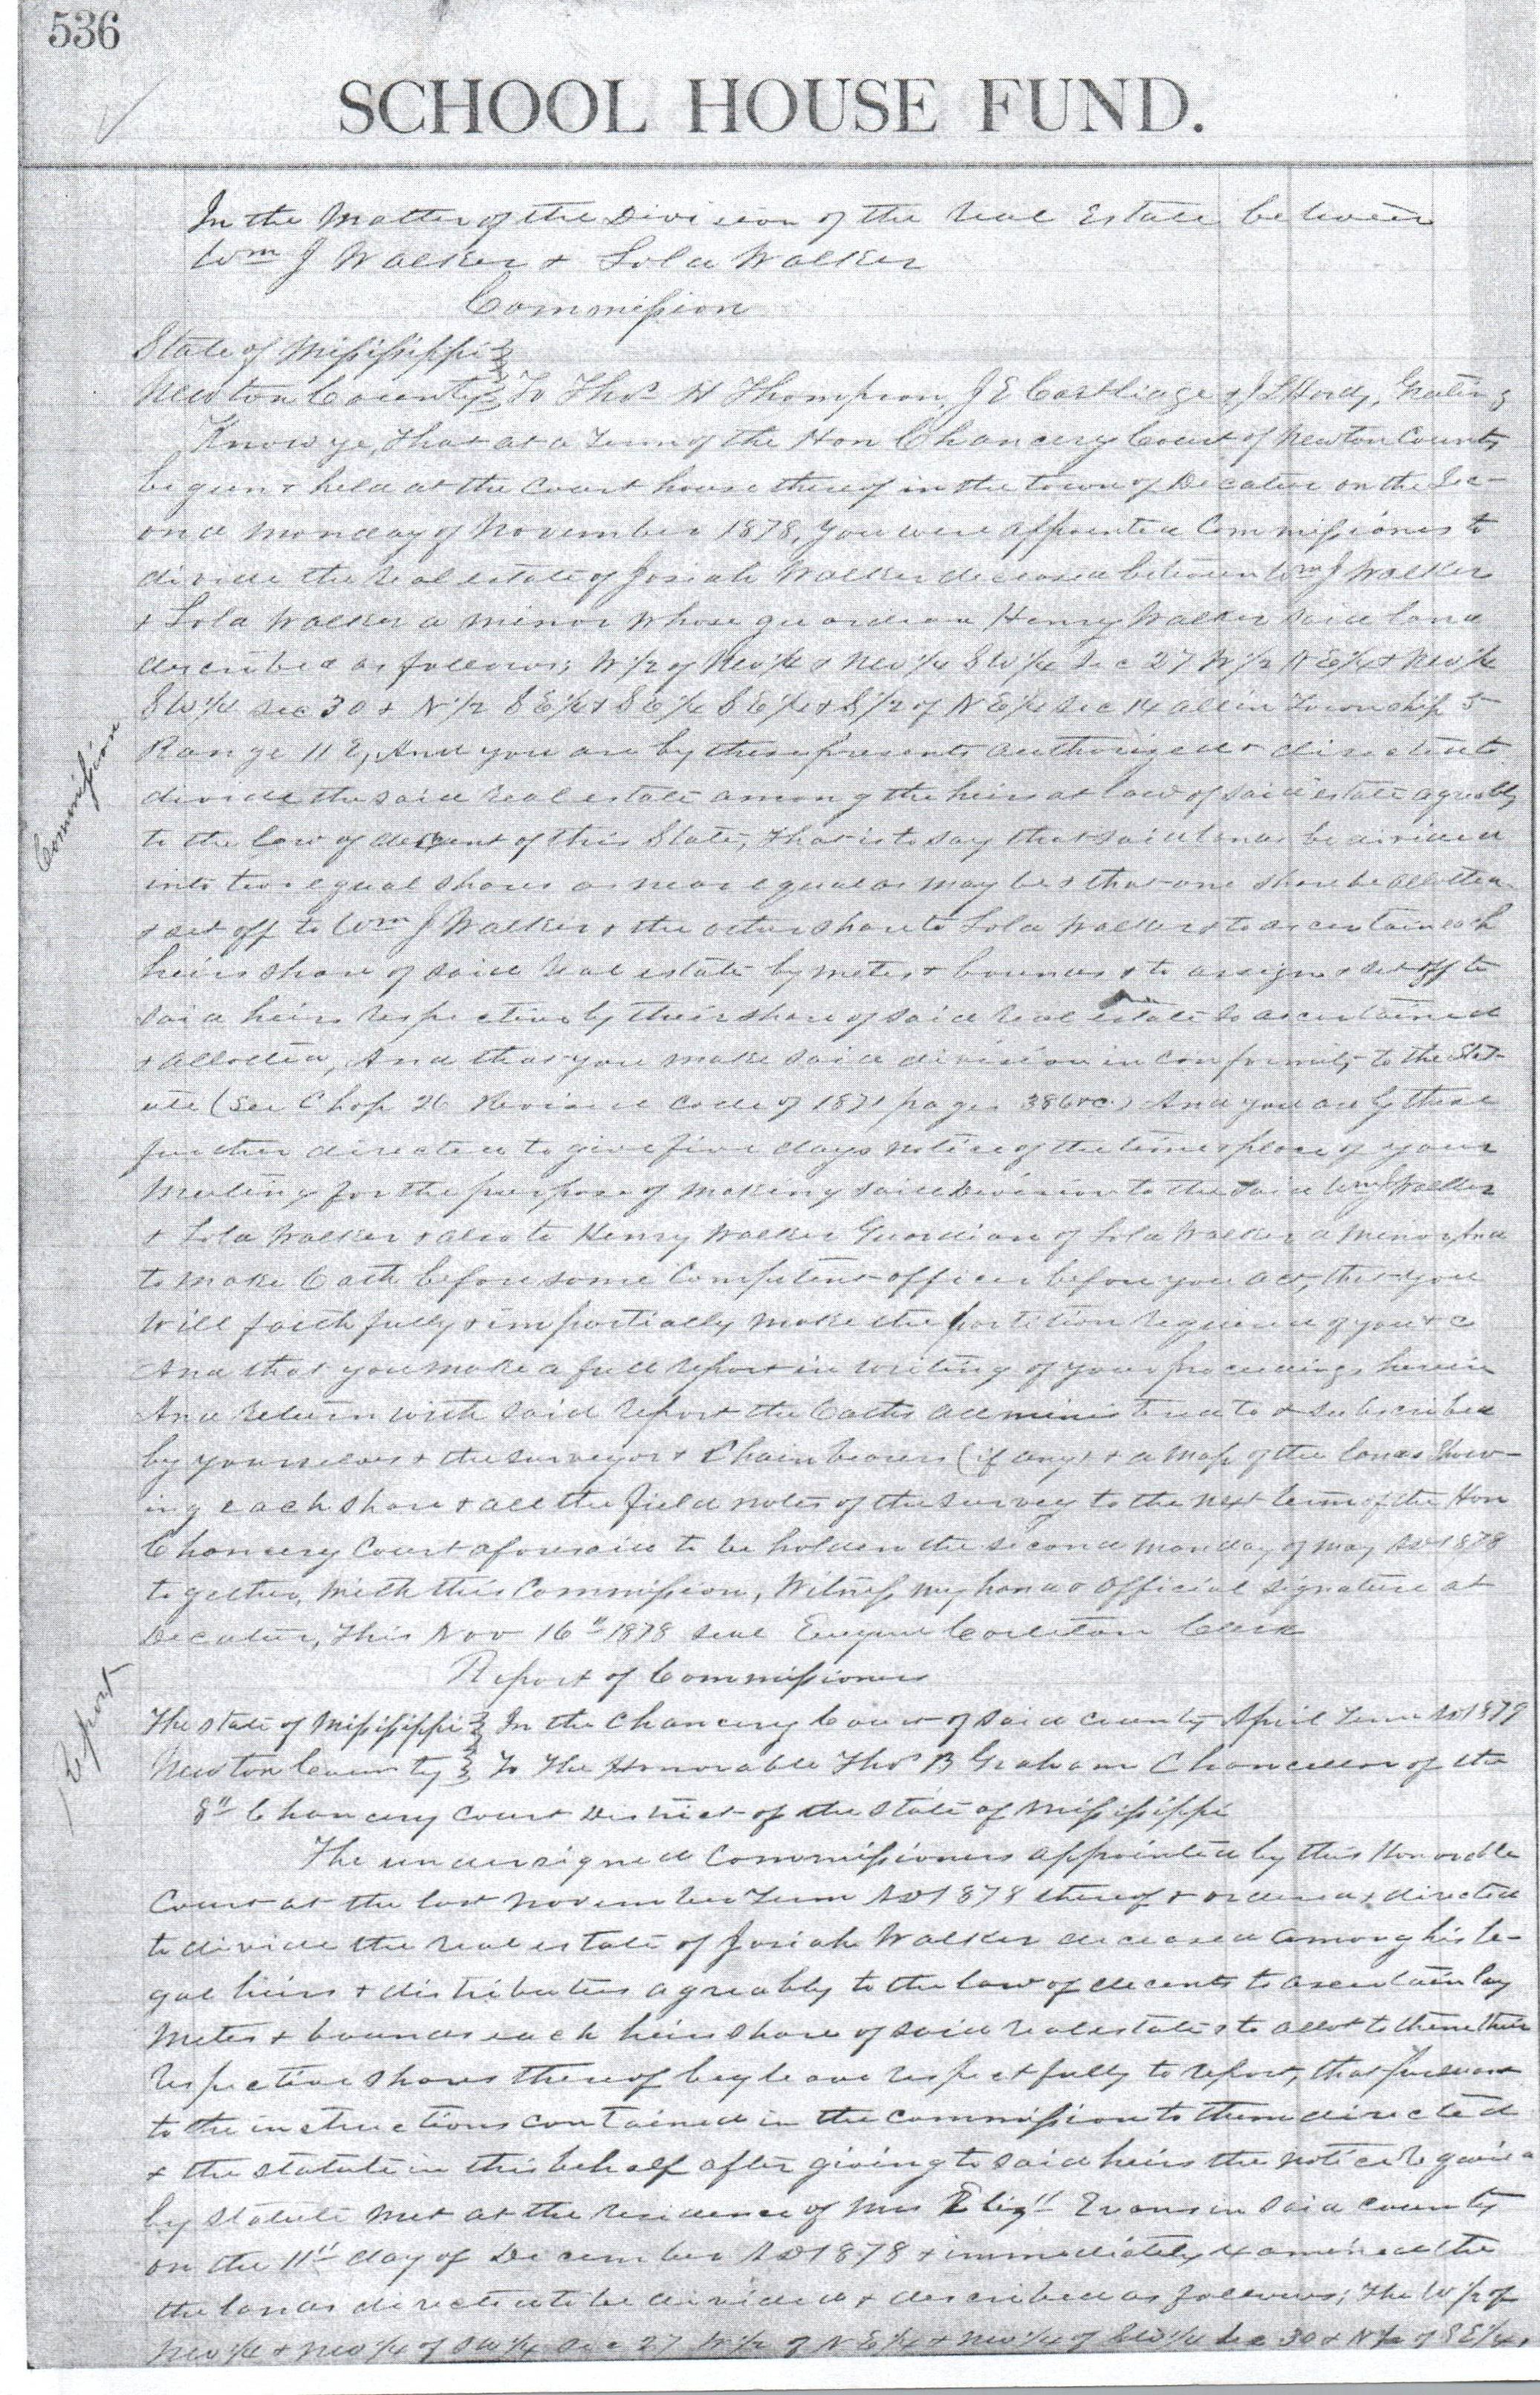 536
SCHOOL HOUSE FUND.
In the Matter of the Division of the Real Estate between
Wm J Walker & Lola Walker
Commission
State of Mississippi
Newton County To Thos H Thompson, J E & J L Hardy, Greeting
Know ye, that at a Term of the Hon Chancery Court of Newton County
begun & held at the Court house thereof in the town of Decatur on the Sec-
ond Monday of November 1878, you were appointed Commissioners to
divide the real estate of Josiah Walker deceased between Wm J Walker
& Lola Walker a minor whose guardian Henry Walker said land
described as follows; W 1/2 of NW 1/4 & NW 1/4 SW 1/4 Sec 27 W 1/2 N E 1/4 & NW 1/4
SW 1/4 sec 30 & N 1/2 S E 1/4 & S E 1/4 S E 1/4 & S 1/2 of N E 1/4 sec 14 all in Township 5
Range 11 E, And you are by these presents authorized & directed to
divide the said real estate among the heirs at law of said estate agreably
to the law of descent of this State, that is to say that said lands be divided
into two equal shares as near equal as may be & that one share be allotted
& set off to Wm J Walker & the other share to Lola Walker & to ascertain each
heirs share of said real estate by metes & bounds & to assign & set off to
said heirs respectively their share of said real estate so ascertained
& allotted, And that you make said division in conformity to the Stat-
ute (See Chap 26 Revised Code of 1871 pages 386 &c) And you are by these
further directed to give five days notice of the time & place of your
Meeting for the purpose of making said Division to the said Wm J Walker
& Lola Walker & also to Henry Walker Guardian of Lola Walker a minor, And
to make Oath before some competent officer before you act, that you
will faithfully & impartially make the partition required of you & c
And that you make a full report in writing of your proceedings herein
And return with said report the Oaths administered to & subscribed
by yourselves & the surveyor & Chain bearers (if any) & a map of the lands Show-
ing each share & all the field notes of the survey to the next term of the Hon
Chancery Court aforesaid to be holden the second Monday of May AD 1878
together, with this Commission, Witness my hand & official signature at
Decatur, This Nov 16" 1878 seal Eugene Carleton Clerk
Report of Commissioners
The State of Mississippi In the Chancery Court of said County April Term AD 1879
Newton County To The Honorable Thos B Graham Chancellor of the
8" Chancery Court District of the State of Mississippi
The undersigned Commissioners appointed by this Honorable
Court at the last November Term AD 1878 thereof & ordered & directed
to divide the real estate of Josiah Walker deceased among his le-
gal heirs & distributees agreably to the law of decents to ascertain by
metes & bounds each heirs share of said real estate & to allot to them their
respective shares thereof beg leave respectfully to report, that pursuant
to the instructions contained in the commission to them directed
& the statute in this behalf after giving to said heirs the notice required
by statute met at the residence of Mrs Eliz" Evans in said county
on the 11" day of December AD 1878 & immediately examined the
the lands directed to be divided & described as follows; The W 1/2 of
NW 1/4 & NW 1/4 of SW 1/4 Sec 27 W 1/2 of N E 1/4 & NW 1/4 of SW 1/4 Sec 30 & N 1/2 of S E 1/4,
Commission
Report